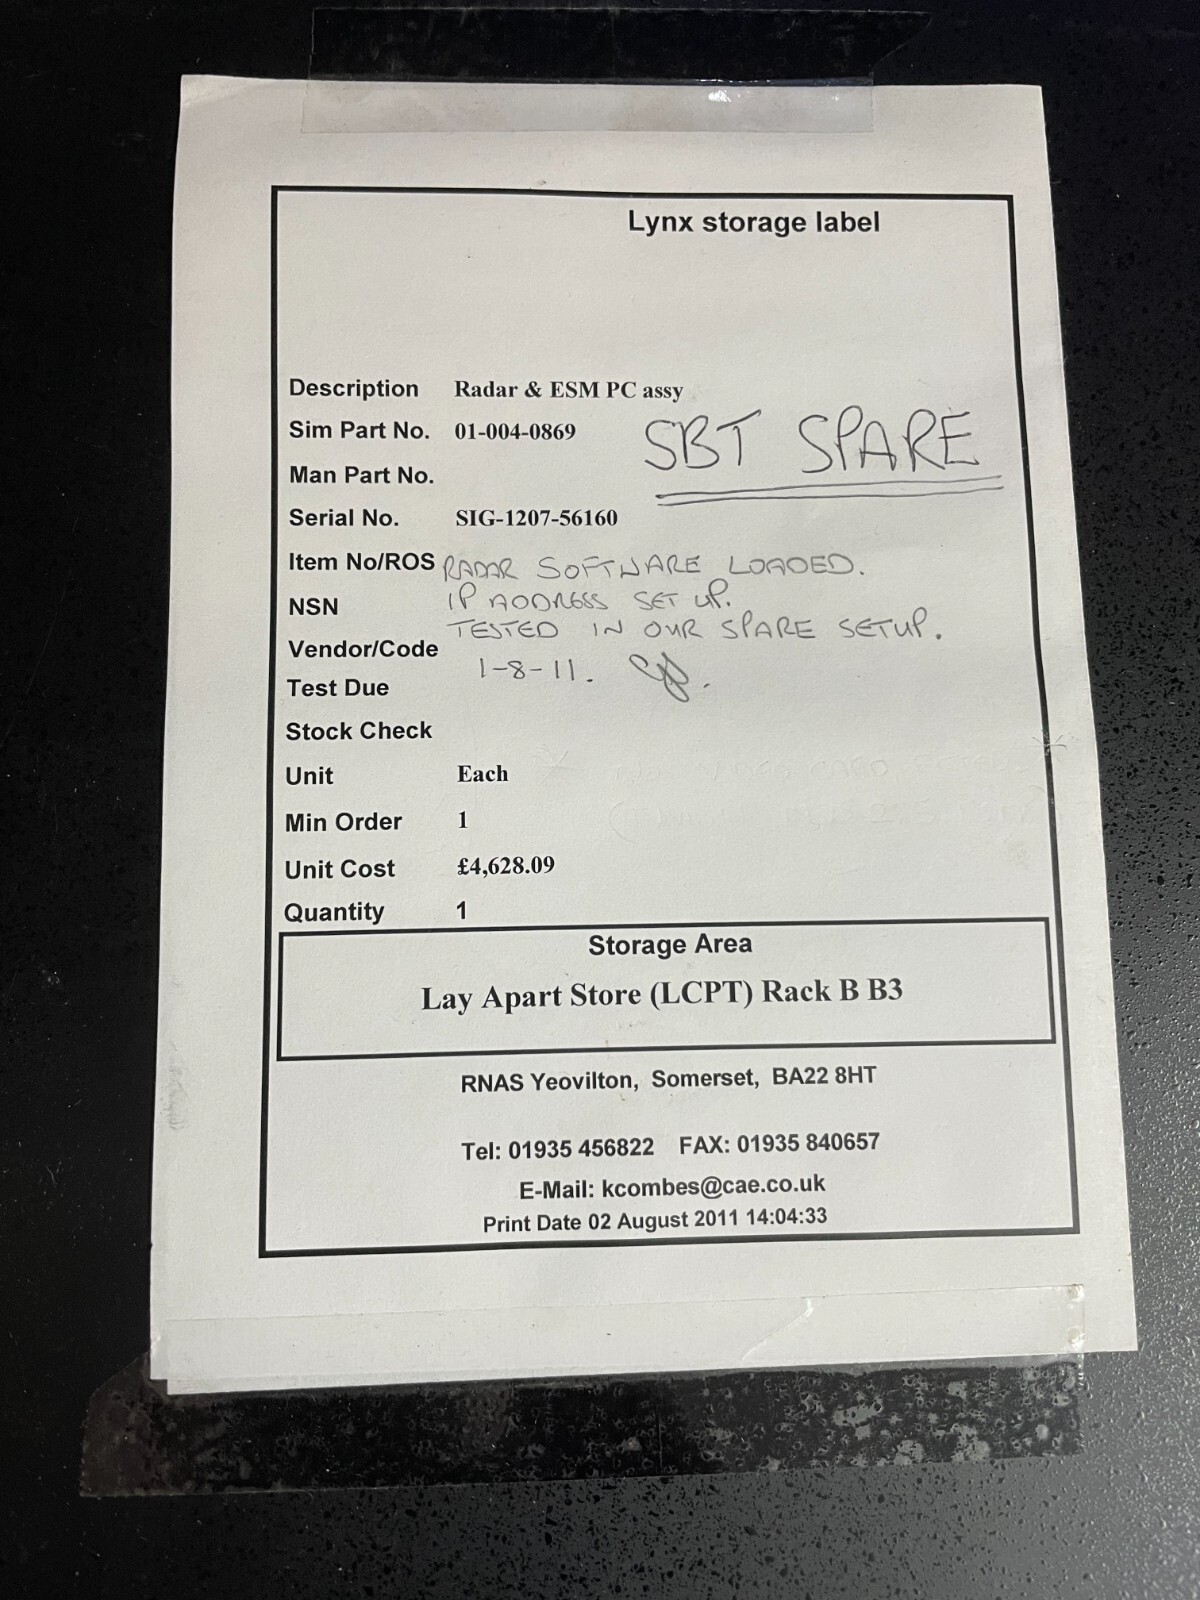 Lynx storage label
Description Radar & ESM PC assy
Sim Part No. 01-004-0869
SBT SPARE
Man Part No.
Serial No. SIG-1207-56160
Item No/ROS RADAR SOFTWARE LOADED.
NSN IP ADDRESS SET UP.
TESTED IN OUR SPARE SETUP.
Vendor/Code
1-8-11.
Test Due
Stock Check
Unit Each
Min Order 1
Unit Cost £4,628.09
Quantity 1
Storage Area
Lay Apart Store (LCPT) Rack B B3
RNAS Yeovilton, Somerset, BA22 8HT
Tel: 01935 456822 FAX: 01935 840657
E-Mail: kcombes@cae.co.uk
Print Date 02 August 2011 14:04:33